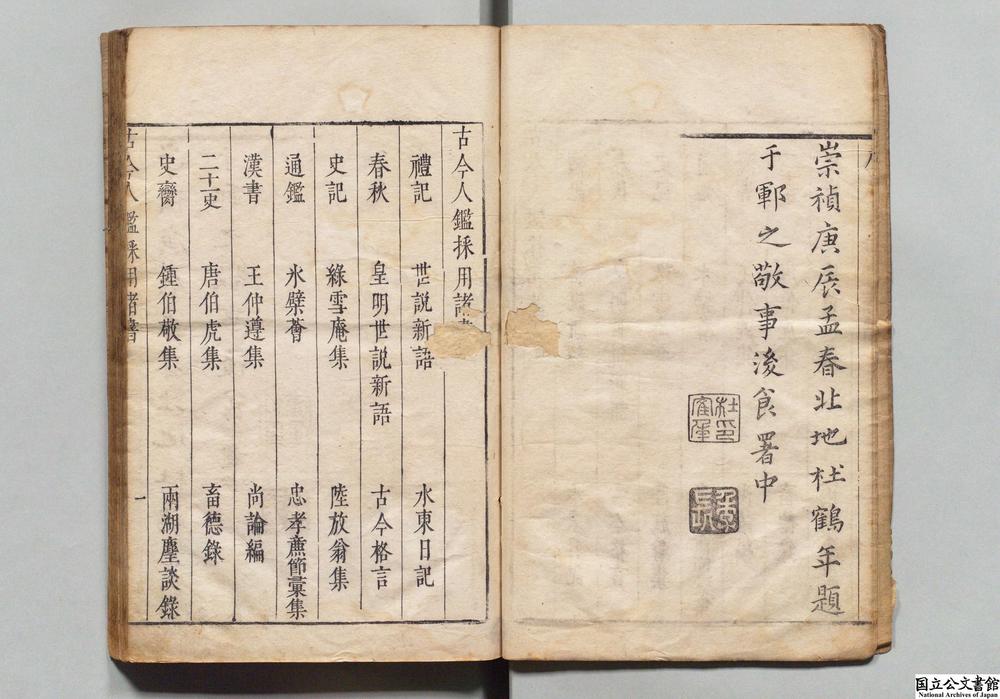 崇禎庚辰孟春北地杜鶴年題
于鄆之敬事後食署中
古今人鑑採用諸書
禮記 世説新語 水東日記
春秋 皇明世説新語 古今格言
史記 綠雪庵集 陸放翁集
通鑑 氷檗薈 忠孝廉節彙集
漢書 王仲遵集 尚論編
二十一史 唐伯虎集 畜德錄
史臠 鍾伯敬集 兩湖麈談錄
古今人鑑採用諸書 一
国立公文書館
National Archives of Japan